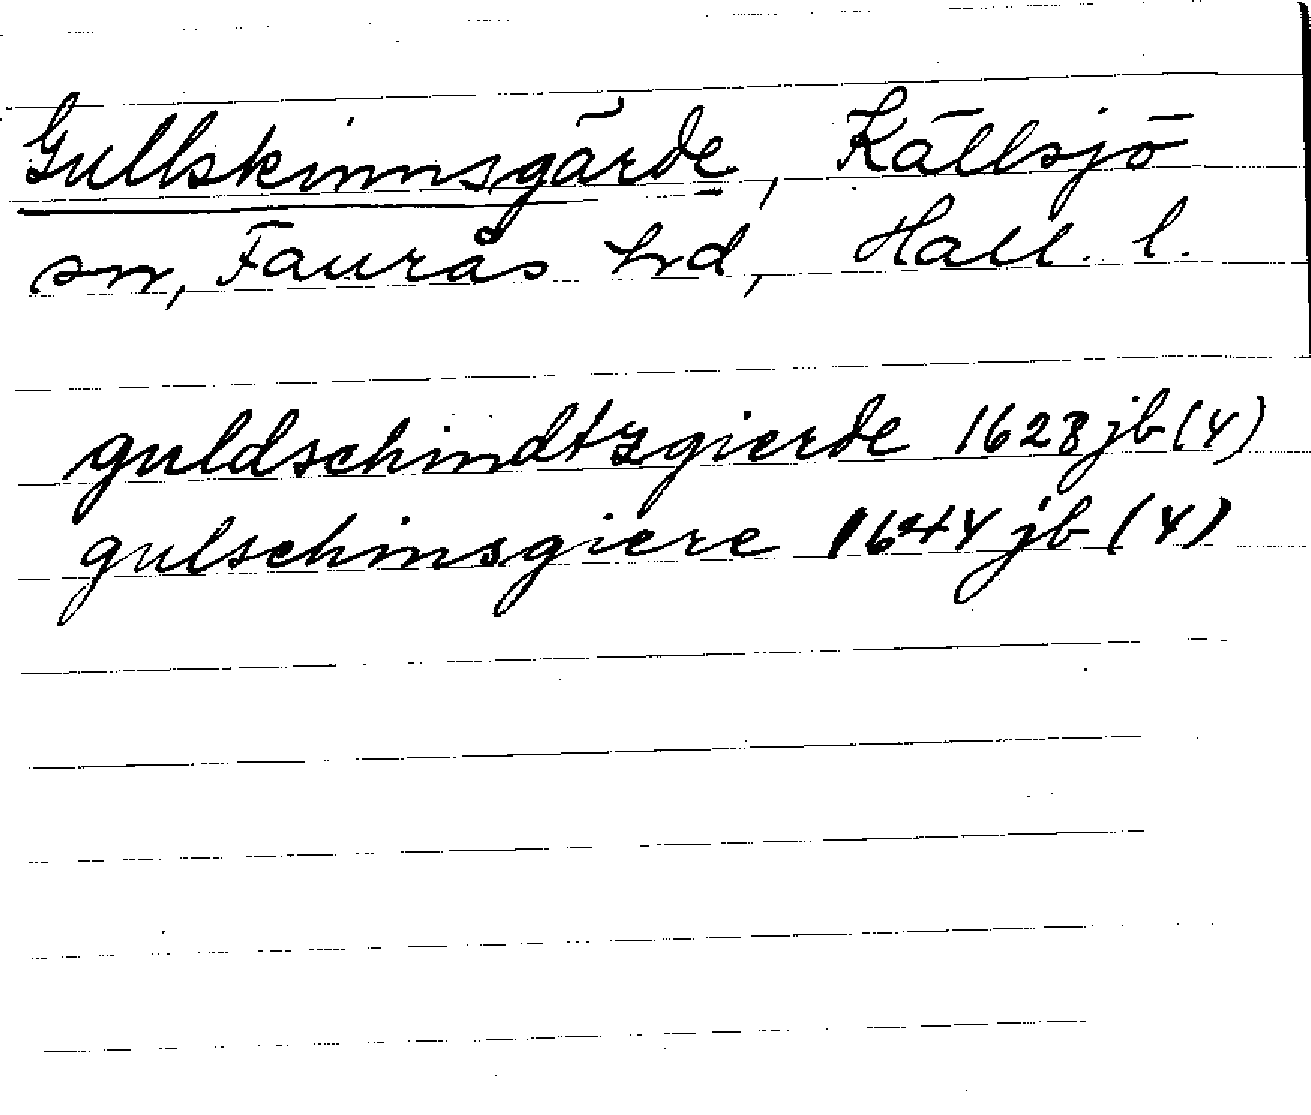 Gullskinnsgärde, Källsjö
sn, Faurås hd, Hall. l.
guldschindtzgierde 1628 jb (4)
gulschinsgiere 1644 jb (4)